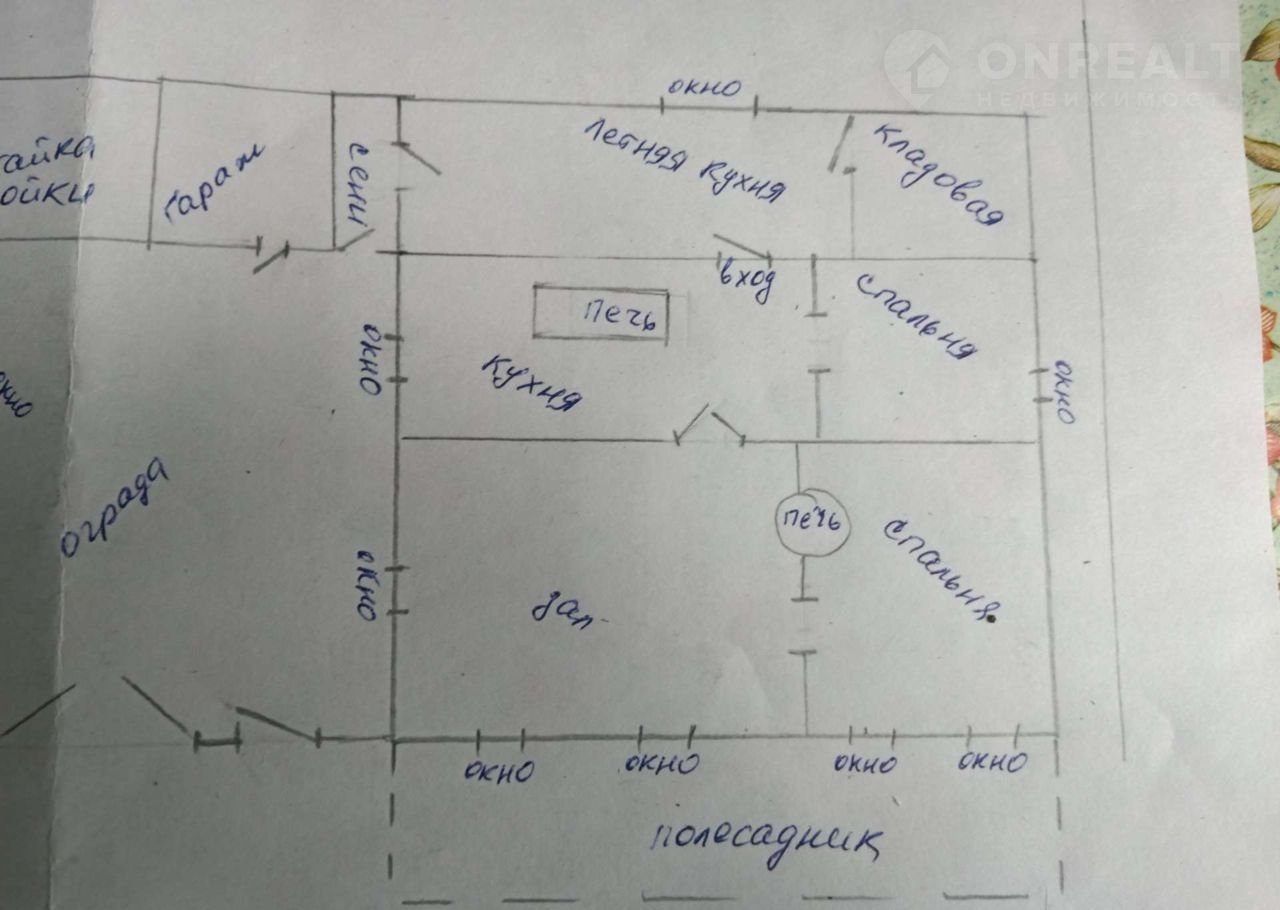 ONREALT
НЕДВИЖИМОСТЬ
окно
Летняя кухня
Кладовая
гараж
сени
вход
Печь
спальня
окно
кухня
окно
ограда
Печь
спальня
окно
зал
окно
окно
окно
окно
полесадник